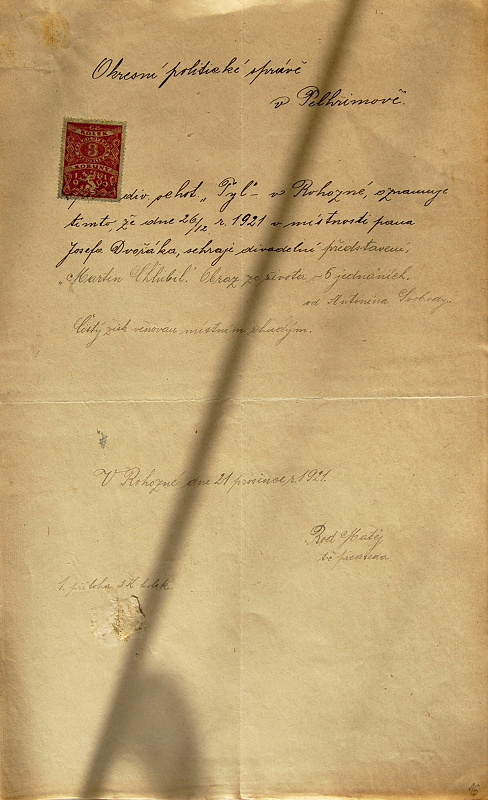 Okresní politické správě
v Pelhřimově.
KOLEK
3
KORUNY
div. ochot. „Tyl" v Rohozné, oznamuje
tímto že dne 26/12 r. 1921 v místnosti pana
Josefa Dvořáka, sehraje divadelní představení,
„Martin Chlubil." Obraz ze života v 5 jednáních.
od Antonína Svobody.
Čistý zisk věnován místním chudým.
V Rohozné dne 21 prosince r. 1921.
Rod Matěj
1. příloha 2 K kolek
16